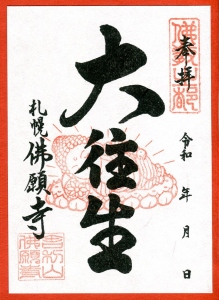 奉拝
令和 年 月 日
大往生
札幌 佛願寺